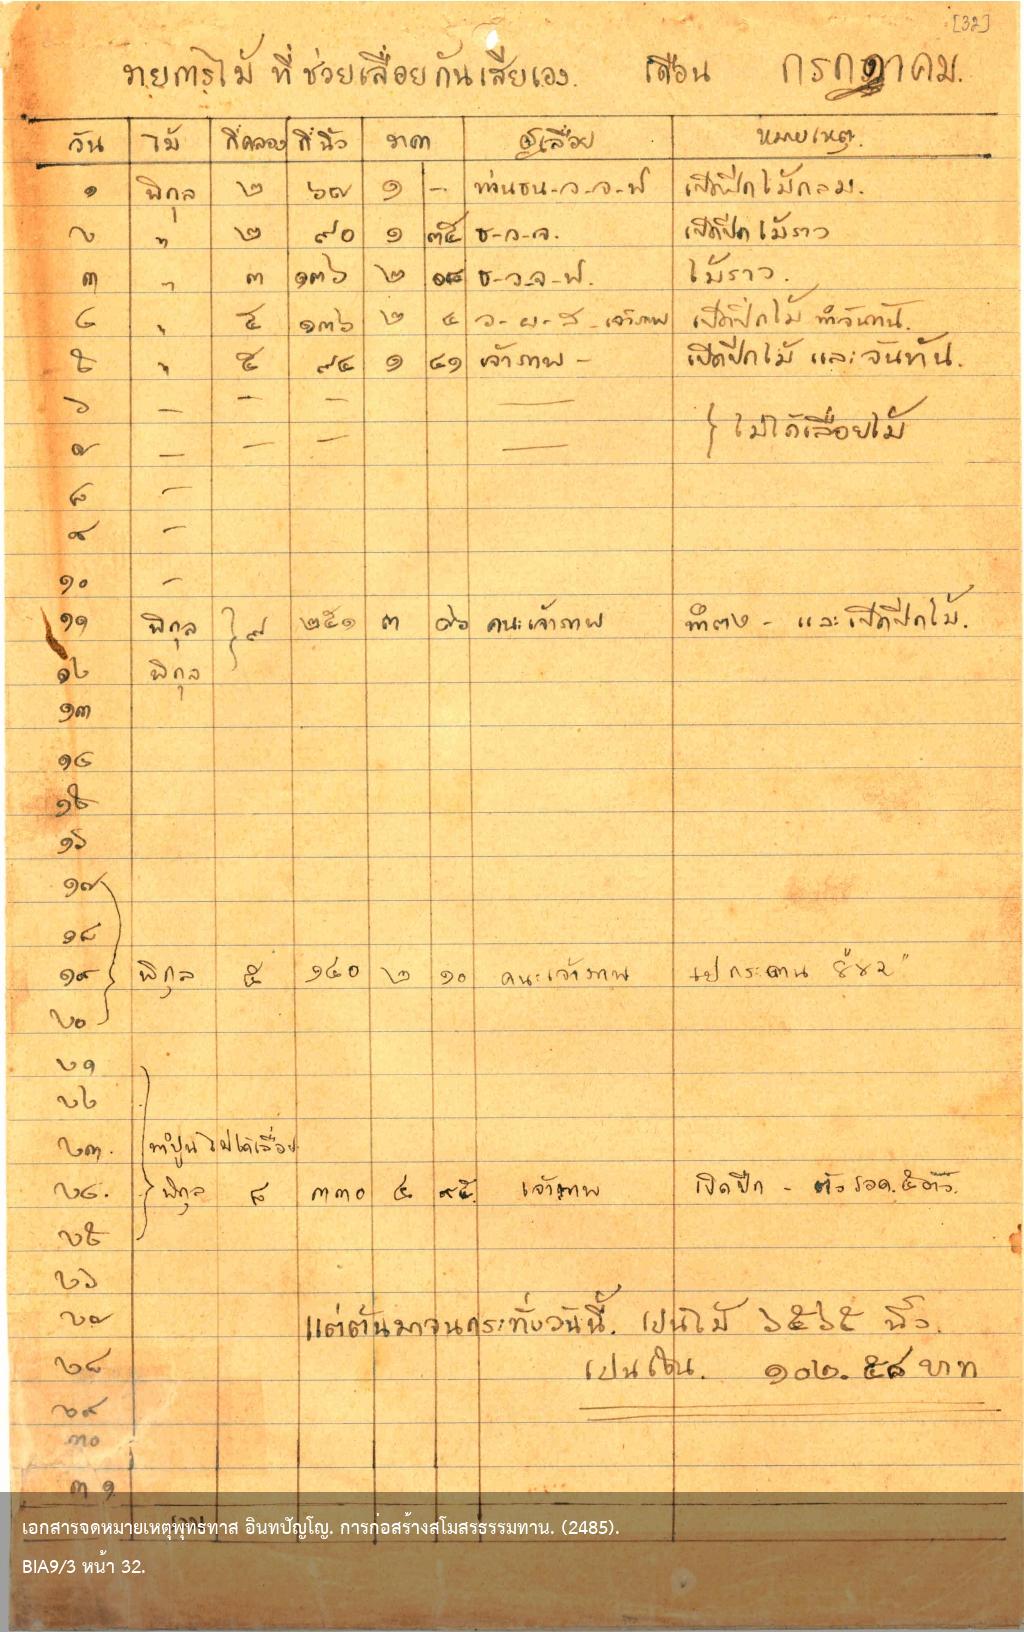 [32]
รายการไม้ ที่ ช่วยเลื่อยกันเสียเอง. เดือน กรกฎาคม.
วัน ไม้ กี่คลอง กี่นิ้ว ราคา ผู้เลื่อย หมายเหตุ.
๑ พิกุล ๒ ๖๗ ๑ - ท่านธน-ว-จ-ฟ เปิดปีกไม้กลม.
๒ " ๒ ๙๐ ๑ ๓๕ ธ-ว-จ. เปิดปีกไม้ราว
๓ " ๓ ๑๓๖ ๒ ธ-ว-จ-ฟ. ไม้ราว.
๔ " ๕ ๑๓๖ ๒ ๔ เจ้าภาพ เปิดปีกไม้ ทำจันทัน.
๕ " ๕ ๙๔ ๑ ๔๑ เจ้าภาพ - เปิดปีกไม้ และจันทัน.
๖ — — — —
๗ — — — — } ไม่ได้เลื่อยไม้
๘ —
๙ —
๑๐ —
๑๑ พิกุล } ๗ ๒๕๑ ๓ ๗๖ คนะเจ้าภาพ ทำตง - และเปิดปีกไม้.
๑๒ พิกุล
๑๓
๑๔
๑๕
๑๖
๑๗
๑๘
๑๙ พิกุล ๕ ๑๔๐ ๒ ๑๐ คนะเจ้าภาพ กระดาน
๒๐
๒๑
๒๒
๒๓. ทำปูน ไม่ได้เลื่อย
๒๔. พิกุล ๘ ๓๓๐ ๔ ๙๕. เจ้าภาพ เปิดปีก -
๒๕
๒๖
๒๗ แต่ต้นมาจนกระทั่งวันนี้. เปนไม้ ๖๕๖๕ นิ้ว.
๒๘ เปนเงิน. ๑๐๒.๕๘ บาท
๒๙
๓๐
๓๑
เอกสารจดหมายเหตุพุทธทาส อินทปัญโญ. การก่อสร้างสโมสรธรรมทาน. (2485).
BIA9/3 หน้า 32.